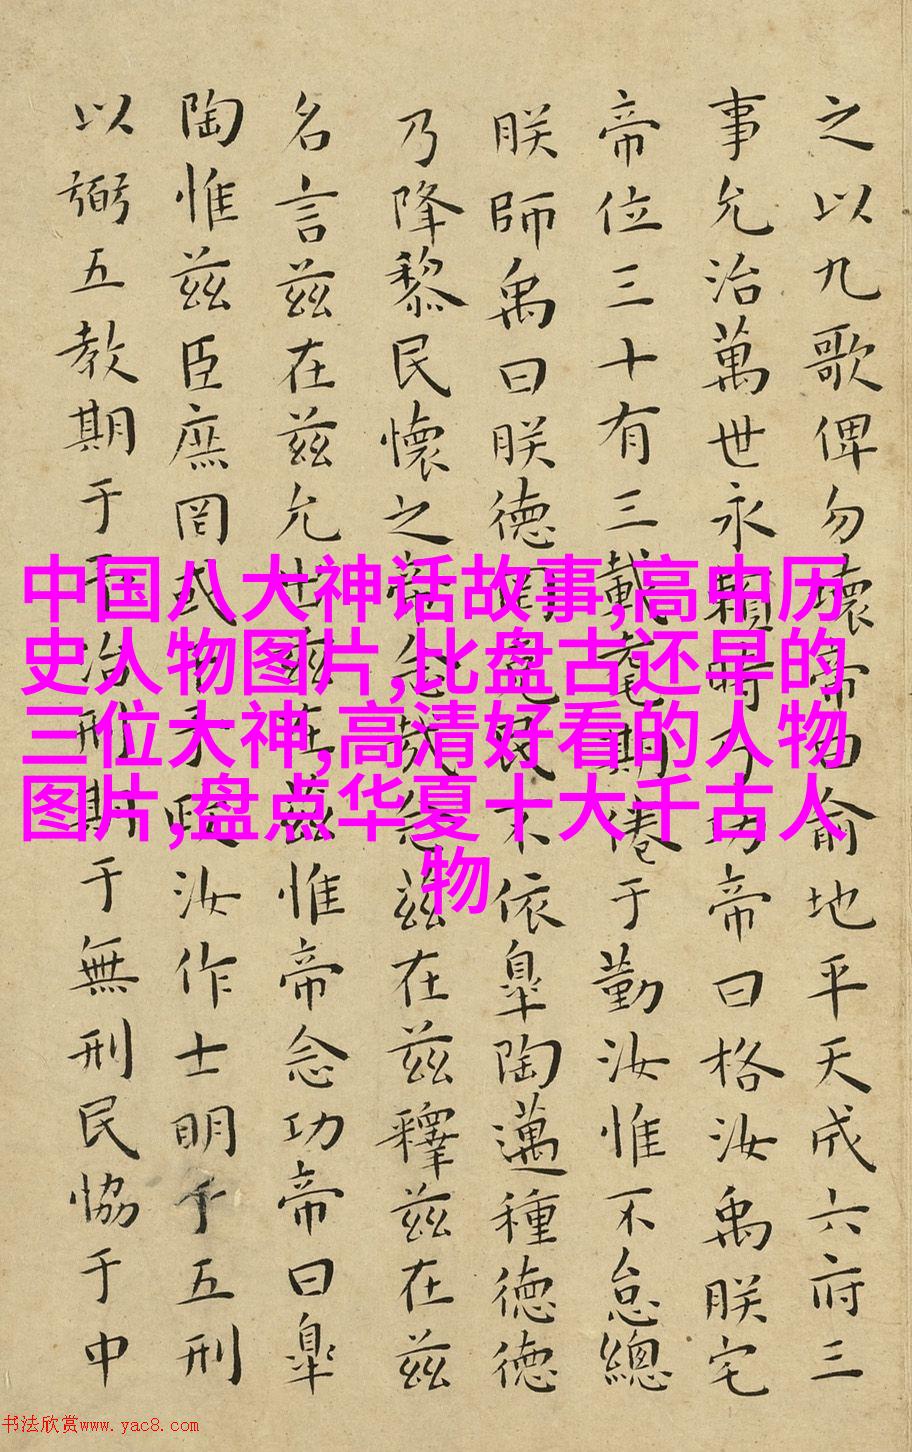 之以九歌俾勿壞帝曰俞地平天成六府三
事允治萬世永賴時乃功帝曰格汝禹朕宅
帝位三十有三載耄期倦于勤汝惟不怠總
朕師禹曰朕德罔克民不依皐陶邁種德德
乃降黎民懷之帝念哉念茲在茲釋茲在茲
名言茲在茲允出茲在茲惟帝念功帝曰皐
陶惟茲臣庶罔或干予汝作士明于五刑
以弼五教期于予治刑期于無刑民協于中
中国八大神话故事,高中历
史人物图片,比盘古还早的
三位大神,高清好看的人物
图片,盘点华夏十大千古人
物
书法欣赏www.yac8.com